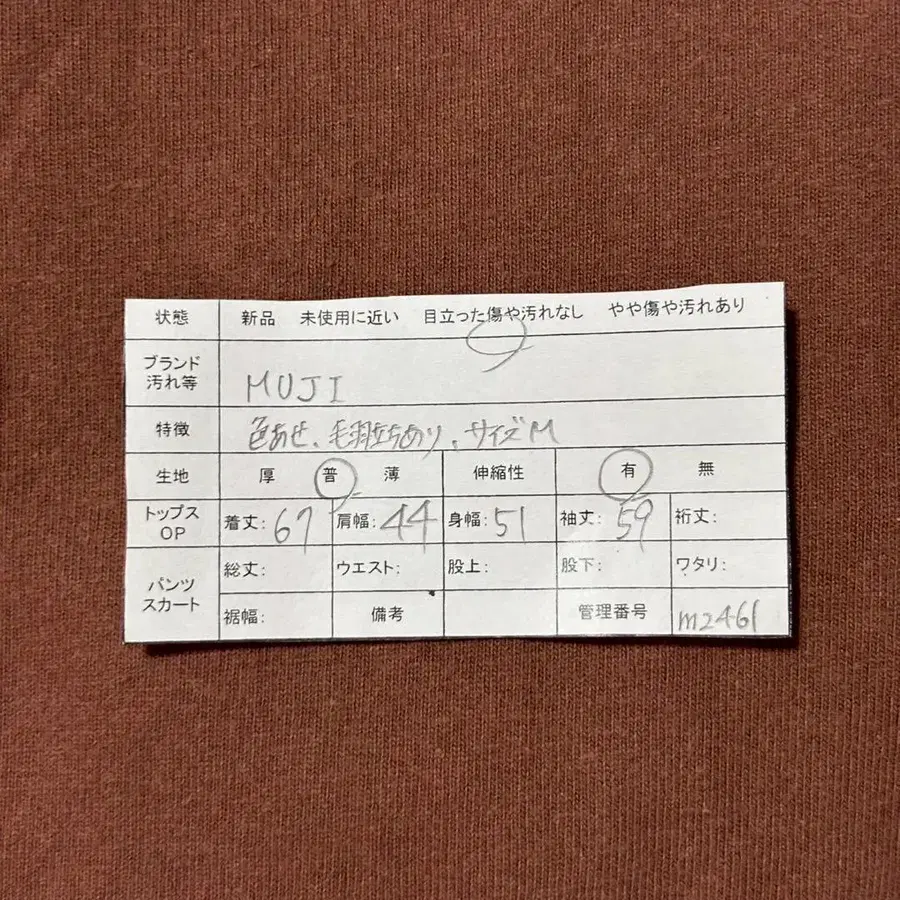 状態 新品 未使用に近い 目立った傷や汚れなし やや傷や汚れあり
ブランド
汚れ等
MUJI
特徴 色あせ、毛羽立ちあり、サイズM
生地 厚 普 薄 伸縮性 有 無
トップス
OP
着丈: 67 肩幅: 44 身幅: 51 袖丈: 59 裄丈:
パンツ
スカート
総丈: ウエスト: 股上: 股下: ワタリ:
裾幅: 備考 管理番号 m2461